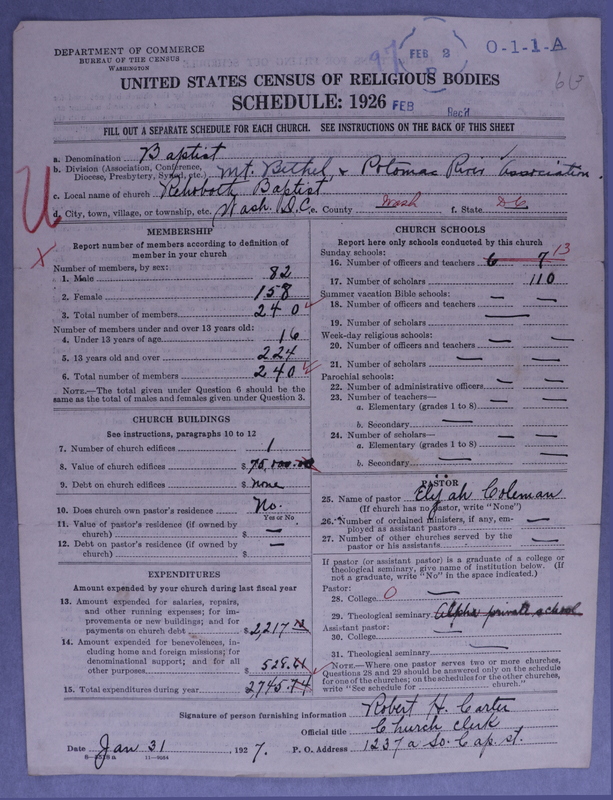 DEPARTMENT OF COMMERCE
BUREAU OF THE CENSUS
WASHINGTON
97
FEB 3
O-1-1-A
UNITED STATES CENSUS OF RELIGIOUS BODIES
SCHEDULE: 1926
FEB Rec'd
FILL OUT A SEPARATE SCHEDULE FOR EACH CHURCH. SEE INSTRUCTIONS ON THE BACK OF THIS SHEET
a. Denomination Baptist
b. Division (Association, Conference, Diocese, Presbytery, Synod, etc.) Mt. Bethel & Potomac River Association.
c. Local name of church Rehoboth Baptist
d. City, town, village, or township, etc. Wash. D.C. e. County Wash f. State DC
MEMBERSHIP
Report number of members according to definition of
member in your church
Number of members, by sex:
1. Male 82
2. Female 158
3. Total number of members 240
Number of members under and over 13 years old:
4. Under 13 years of age 16
5. 13 years old and over 224
6. Total number of members 240
NOTE.—The total given under Question 6 should be the
same as the total of males and females given under Question 3.
CHURCH BUILDINGS
See instructions, paragraphs 10 to 12
7. Number of church edifices 1
8. Value of church edifices $75,000.00
9. Debt on church edifices $ none
10. Does church own pastor's residence? No.
Yes or No
11. Value of pastor's residence (if owned by
church) $ —
12. Debt on pastor's residence (if owned by
church) $ —
EXPENDITURES
Amount expended by your church during last fiscal year
13. Amount expended for salaries, repairs,
and other running expenses; for im-
provements or new buildings; and for
payments on church debt $2,217
14. Amount expended for benevolences, in-
cluding home and foreign missions; for
denominational support; and for all
other purposes $ 528.
15. Total expenditures during year $2745.74
CHURCH SCHOOLS
Report here only schools conducted by this church
Sunday schools:
16. Number of officers and teachers 6 7 13
17. Number of scholars 110
Summer vacation Bible schools:
18. Number of officers and teachers — —
19. Number of scholars —
Week-day religious schools:
20. Number of officers and teachers — —
21. Number of scholars — —
Parochial schools:
22. Number of administrative officers — —
23. Number of teachers—
a. Elementary (grades 1 to 8) — —
b. Secondary —
24. Number of scholars—
a. Elementary (grades 1 to 8) — —
b. Secondary —
PASTOR
25. Name of pastor Elijah Coleman
(If church has no pastor, write "None")
26. Number of ordained ministers, if any, em-
ployed as assistant pastors —
27. Number of other churches served by the
pastor or his assistants —
If pastor (or assistant pastor) is a graduate of a college or
theological seminary, give name of institution below. (If
not a graduate, write "No" in the space indicated.)
Pastor:
28. College O —
29. Theological seminary Alpha private school
Assistant pastor:
30. College —
31. Theological seminary —
NOTE.—Where one pastor serves two or more churches,
Questions 28 and 29 should be answered only on the schedule
for one of the churches; on the schedules for the other churches,
write "See schedule for church."
Signature of person furnishing information Robert H. Carter
Official title Church Clerk
Date Jan 31 1927. P. O. Address 1237 a So. Cap. st.
11—9584